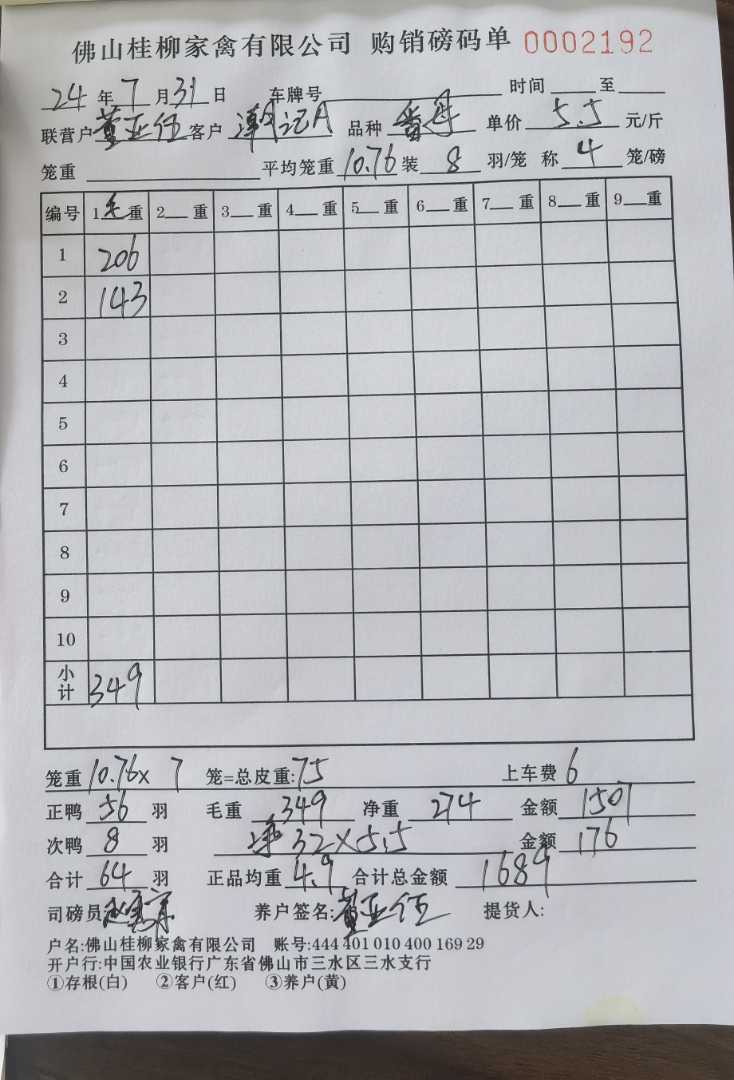 佛山桂柳家禽有限公司 购销磅码单 0002192
24年7月31日 车牌号 时间 至
联营户董亚伍客户潮记A 品种香丹 单价5.5元/斤
笼重 平均笼重10.76装8羽/笼 称4笼/磅
编号 1毛重 2 重 3 重 4 重 5 重 6 重 7 重 8 重 9 重
1 206
2 143
3
4
5
6
7
8
9
10
小计 349
笼重10.76×7笼=总皮重:75 上车费6
正鸭56羽 毛重349净重274金额1507
次鸭8羽 净32×5.5金额176
合计64羽 正品均重4.9合计总金额1689
司磅员: 养户签名:董亚伍 提货人:
户名:佛山桂柳家禽有限公司 账号:444 401 010 400 169 29
开户行:中国农业银行广东省佛山市三水区三水支行
①存根(白) ②客户(红) ③养户(黄)